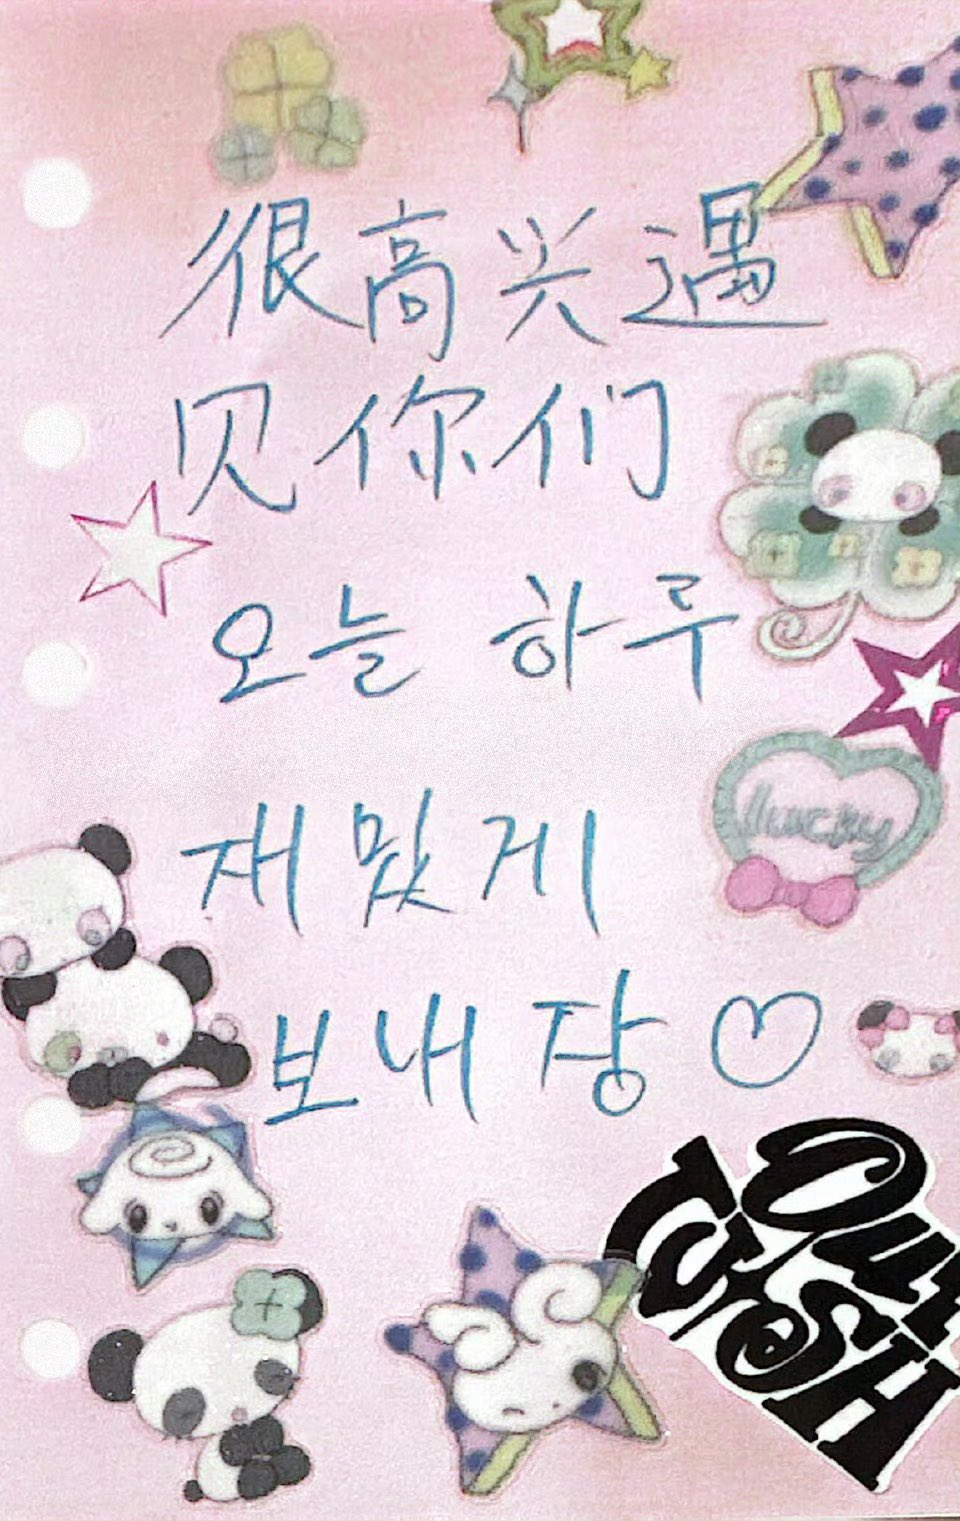 很高兴遇
见你们
오늘 하루
재밌게
보내장♡
lucky
Out
CraSH